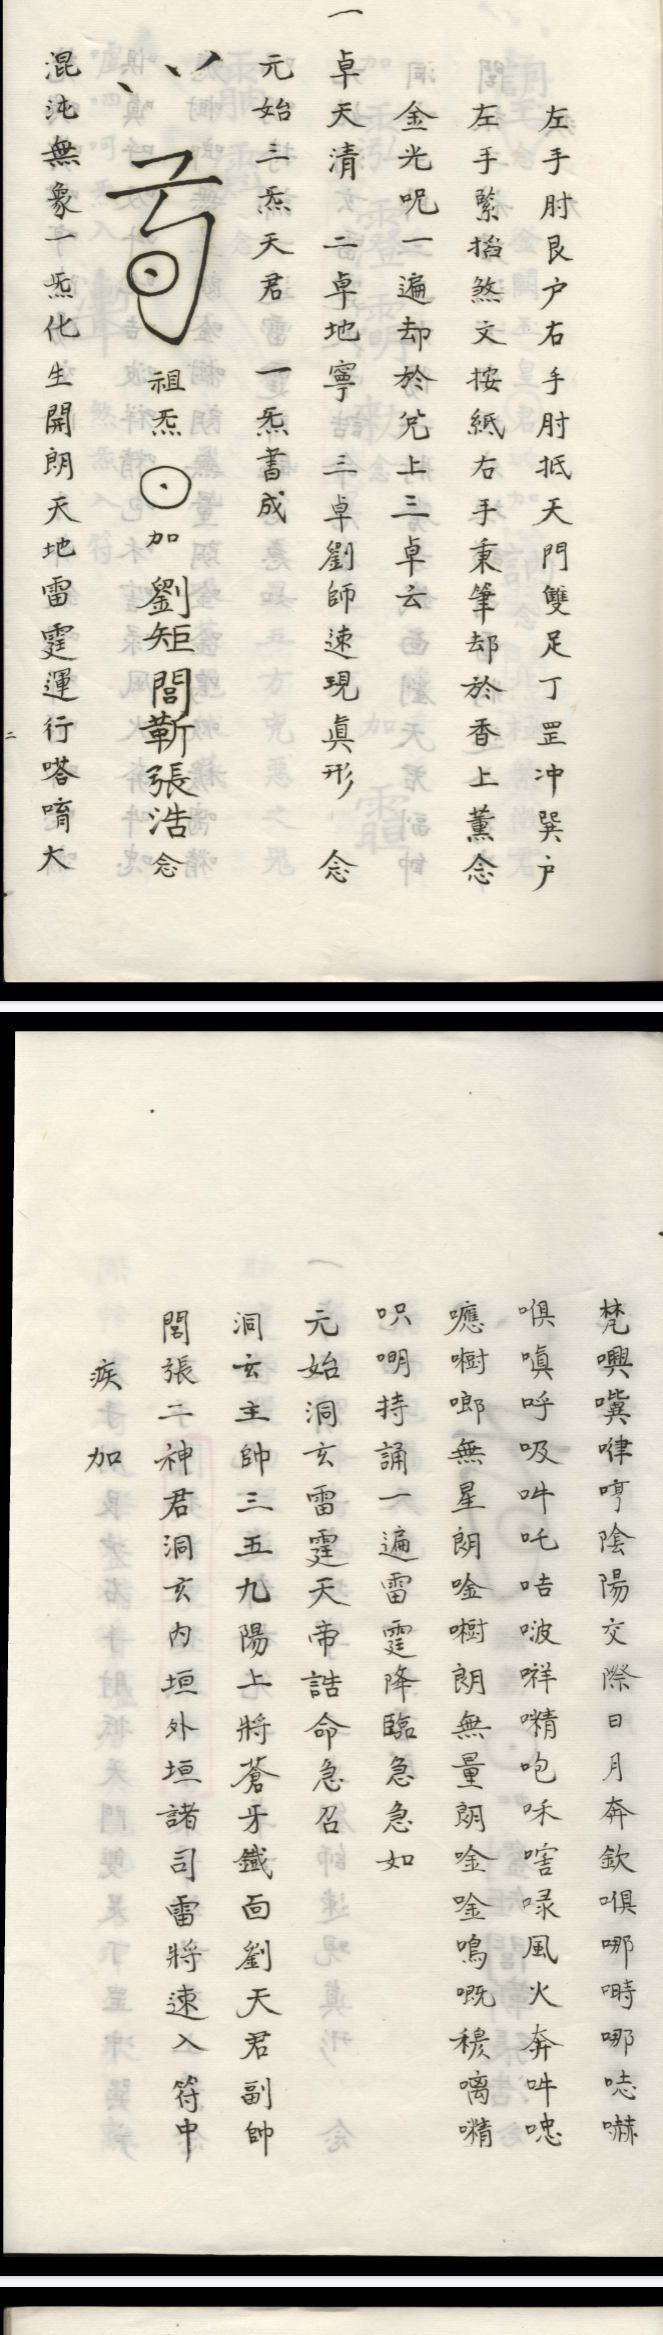 左手肘艮户右手肘抵天門雙足丁罡冲巽户
左手緊掐煞文按紙右手秉筆却於香上薰念
金光呪一遍却於兊上三卓云
一卓天清 二卓地寧 三卓劉師速現真形 念
元始三炁天君 一炁書成
祖炁 加 劉矩閻蘄張浩念
混沌無象一炁化生開朗天地雷霆運行嗒唷大
二
梵㘈㘍嘩哼陰陽交際日月奔欽唭哪㗭哪嚇
唭嗔呼吸吽吒咭啵㖶㗩咆咊嗐㖨風火奔吽唿
嚈㗰啷無星朗唫㗰朗無量朗唫唫鳴嘅穆㗩
呮明持誦一遍雷霆降臨急急如
元始洞玄雷霆天帝誥命急召
洞玄主帥三五九陽上將蒼牙鐵面劉天君副帥
閻張二神君洞玄內垣外垣諸司雷將速入符中
疾 加